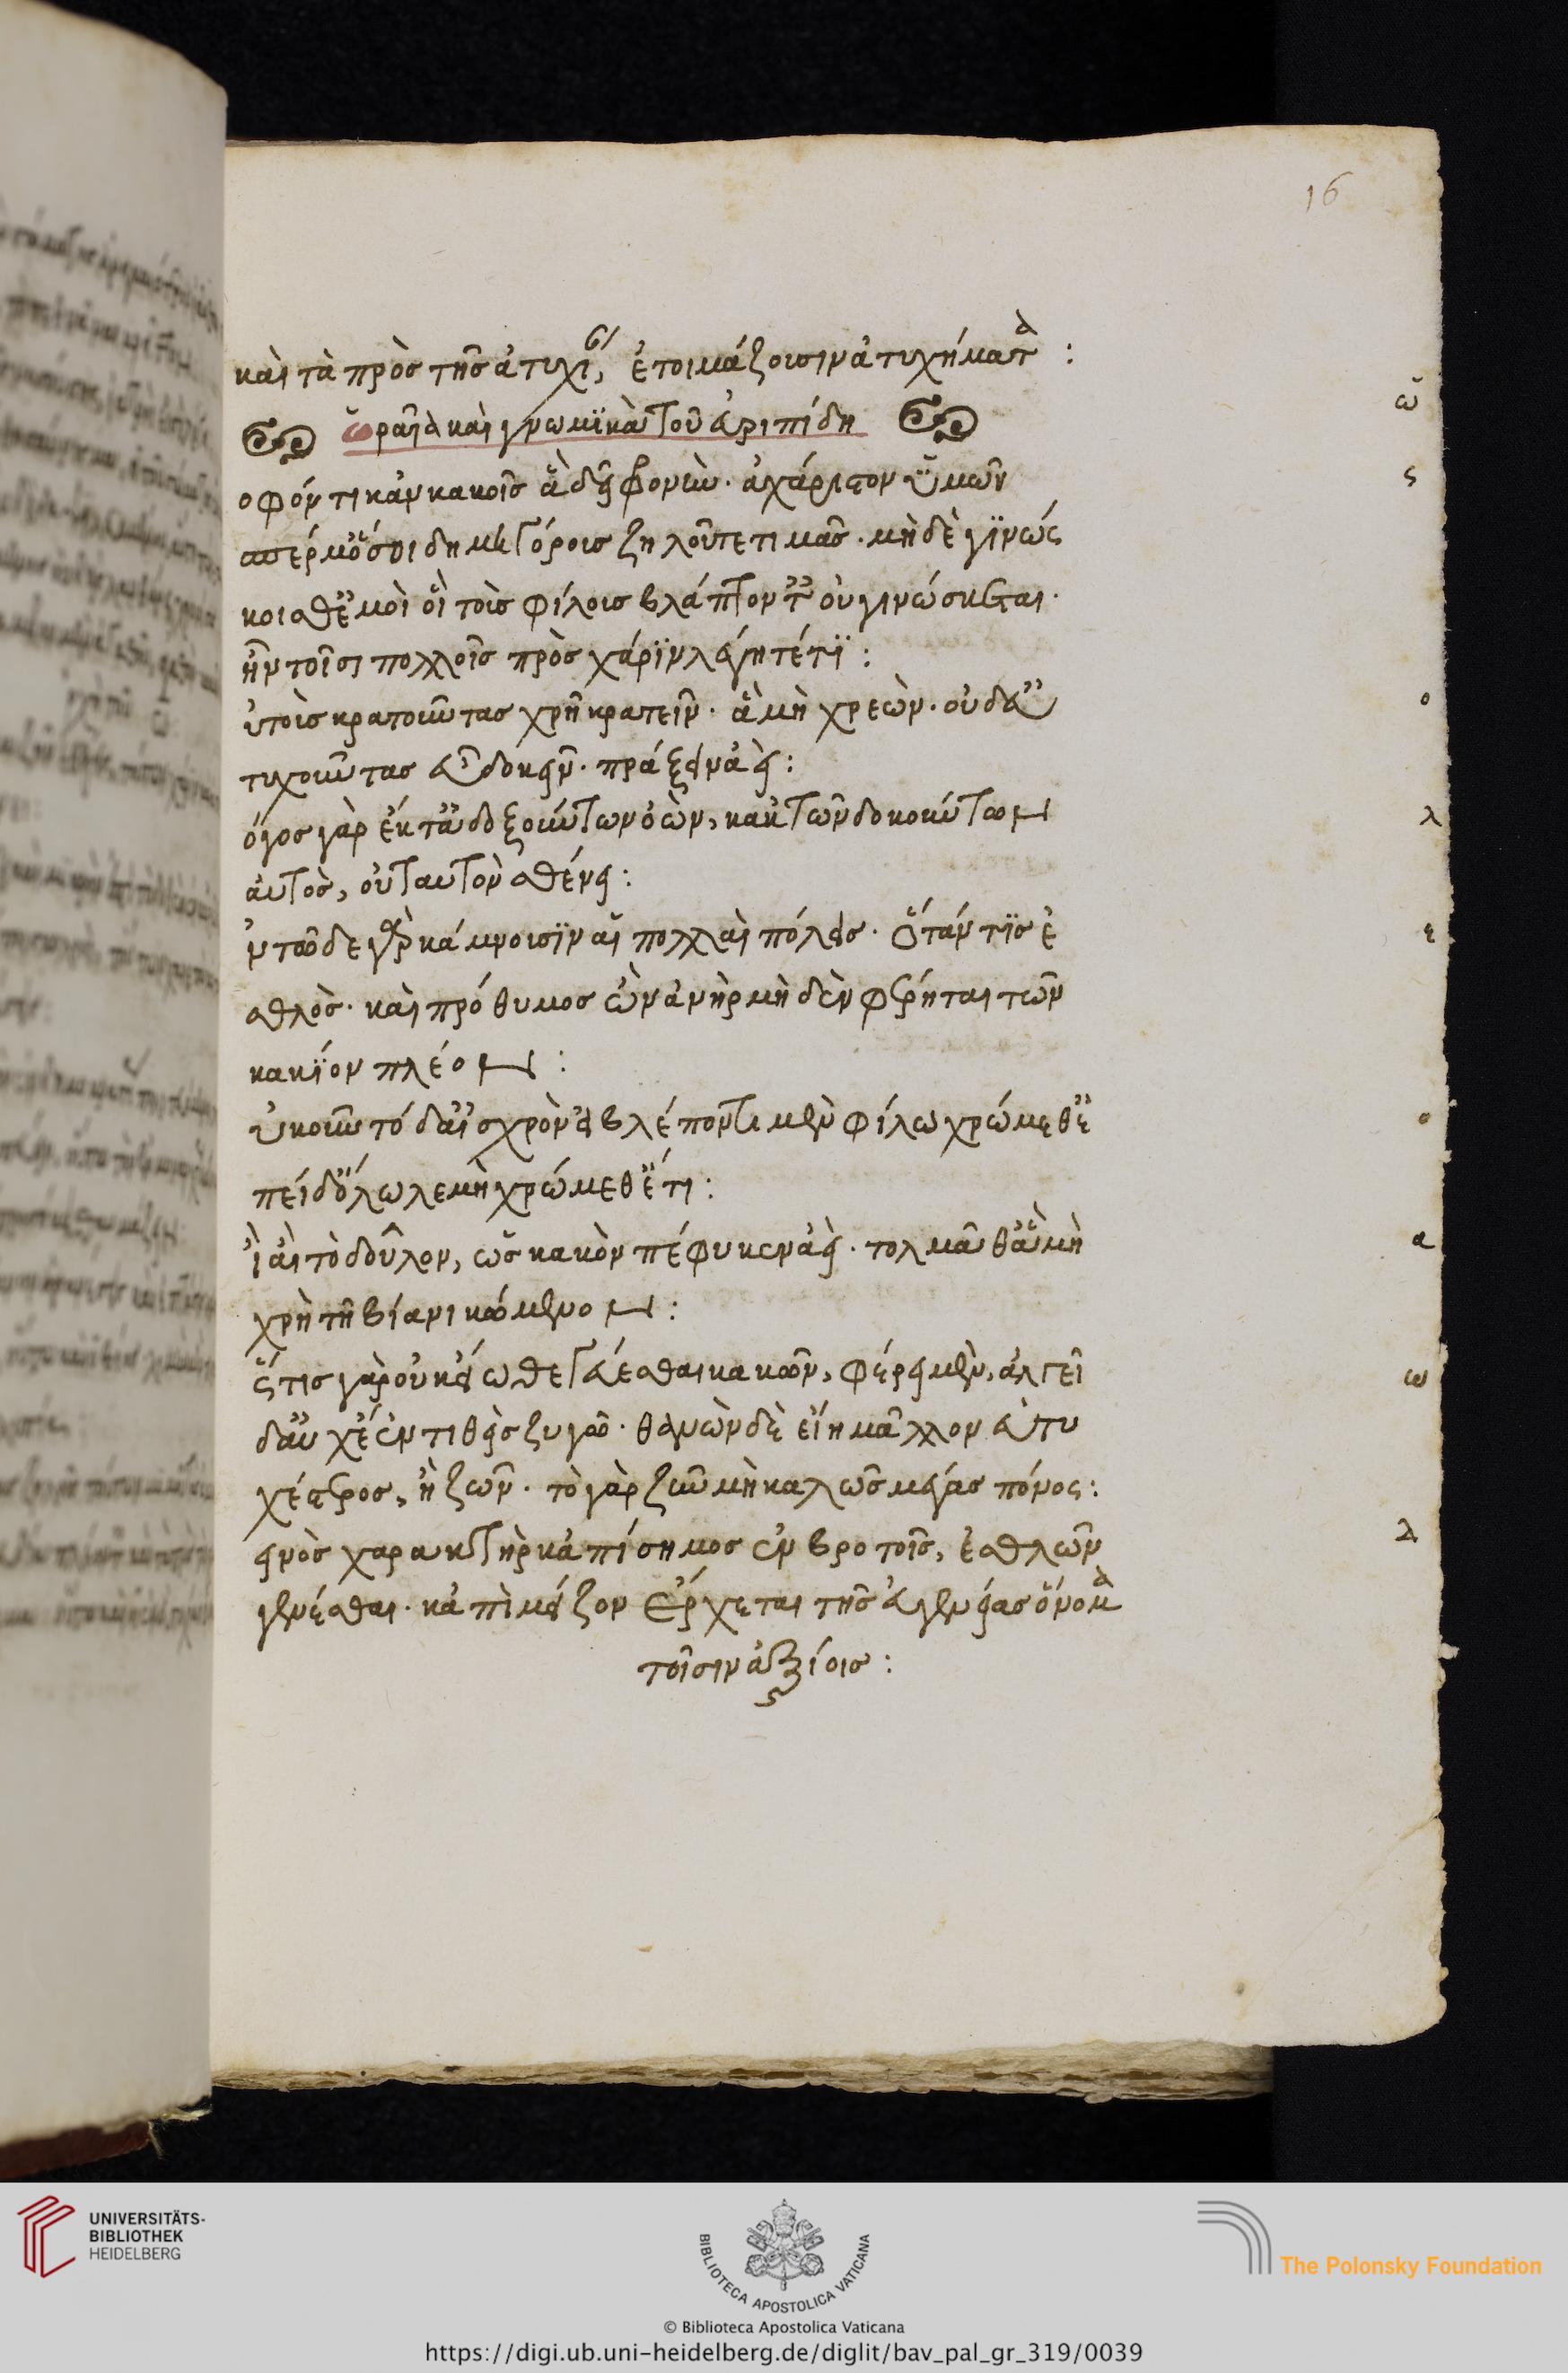 16
καὶ τὰ πρὸς τῆς ἀτυχί, ἑτοιμάζουσιν ἀτυχήματα :
ὡραῖα καὶ γνωμϊκὰ τοῦ ἐυριπίδη
οφόν τι κἀν κακοῖς ἃ δεῖ φρονεῖν· ἀχάριστον ὑμῶν
σπέρμ' ὅσοι δημηγόροις ζηλοῦτε τιμάς· μὴ δὲ γϊνώς
κοισθέ μοὶ οἳ τοὺς φίλους βλάπτοντες οὐ γινώσκεται·
ἢν τοῖσι πολλοῖς πρὸς χάρϊν λέγητέ τϊ :
ὐ τοὺς κρατοῦντας χρὴ κρατεῖν· ἃ μὴ χρεὼν· οὐδ' εὐ
τυχοῦντας εὖ δοκεῖν· πράξειν ἀεὶ :
όγος γὰρ ἔκ τ' ἀδοξούντων ἰὼν, κακ τῶν δοκούντων
ἁυτὸς, οὐ ταυτὸν σθένει :
ν τῶδε γὰρ κάμνουσϊν αἱ πολλαὶ πόλεις· ὅταν τϊς ἐ
σθλὸς· καὶ πρόθυμος ὢν ἀνὴρ μὴ δὲν φέρηται τῶν
κακϊόνων πλέον :
ὐκοῦν τόδ' αἰσχρὸν εἰ βλέποντι μὲν φίλω χρώμεθ' ἐ
πεί δ' ὄλωλε μὴ χρώμεθ' ἔτι :
ἰ αἲ τὸ δοῦλον, ὡς κακὸν πέφυκεν ἀεὶ· τολμᾶ θ' ἃ μὴ
χρὴ τῆ βία νικώμενον :
ς τις γὰρ οὐκ εἴωθε γεύεσθαι κακῶν, φέρει μὲν, ἀλγεῖ
δ' αὐχέν' ἐντιθεὶς ζυγῶ· θανὼν δὲ εἴη μᾶλλον εὐτυ
χέστερος, ἢ ζῶν· τὸ γὰρ ζῆν μὴ καλῶς μέγας πόνος :
εινὸς χαρακτὴρ κἀπίσημος ἐν βροτοῖς, ἐσθλῶν
γενέσθαι· κἀπὶ μεῖζον ἔρχεται τῆς εὐγενείας ὄνομα
τοῖσιν ἀξίοις :
ὡ
ς
ο
λ
ε
ο
α
ω
δ
UNIVERSITÄTS-
BIBLIOTHEK
HEIDELBERG
BIBLIOTECA APOSTOLICA VATICANA
The Polonsky Foundation
© Biblioteca Apostolica Vaticana
https://digi.ub.uni-heidelberg.de/diglit/bav_pal_gr_319/0039